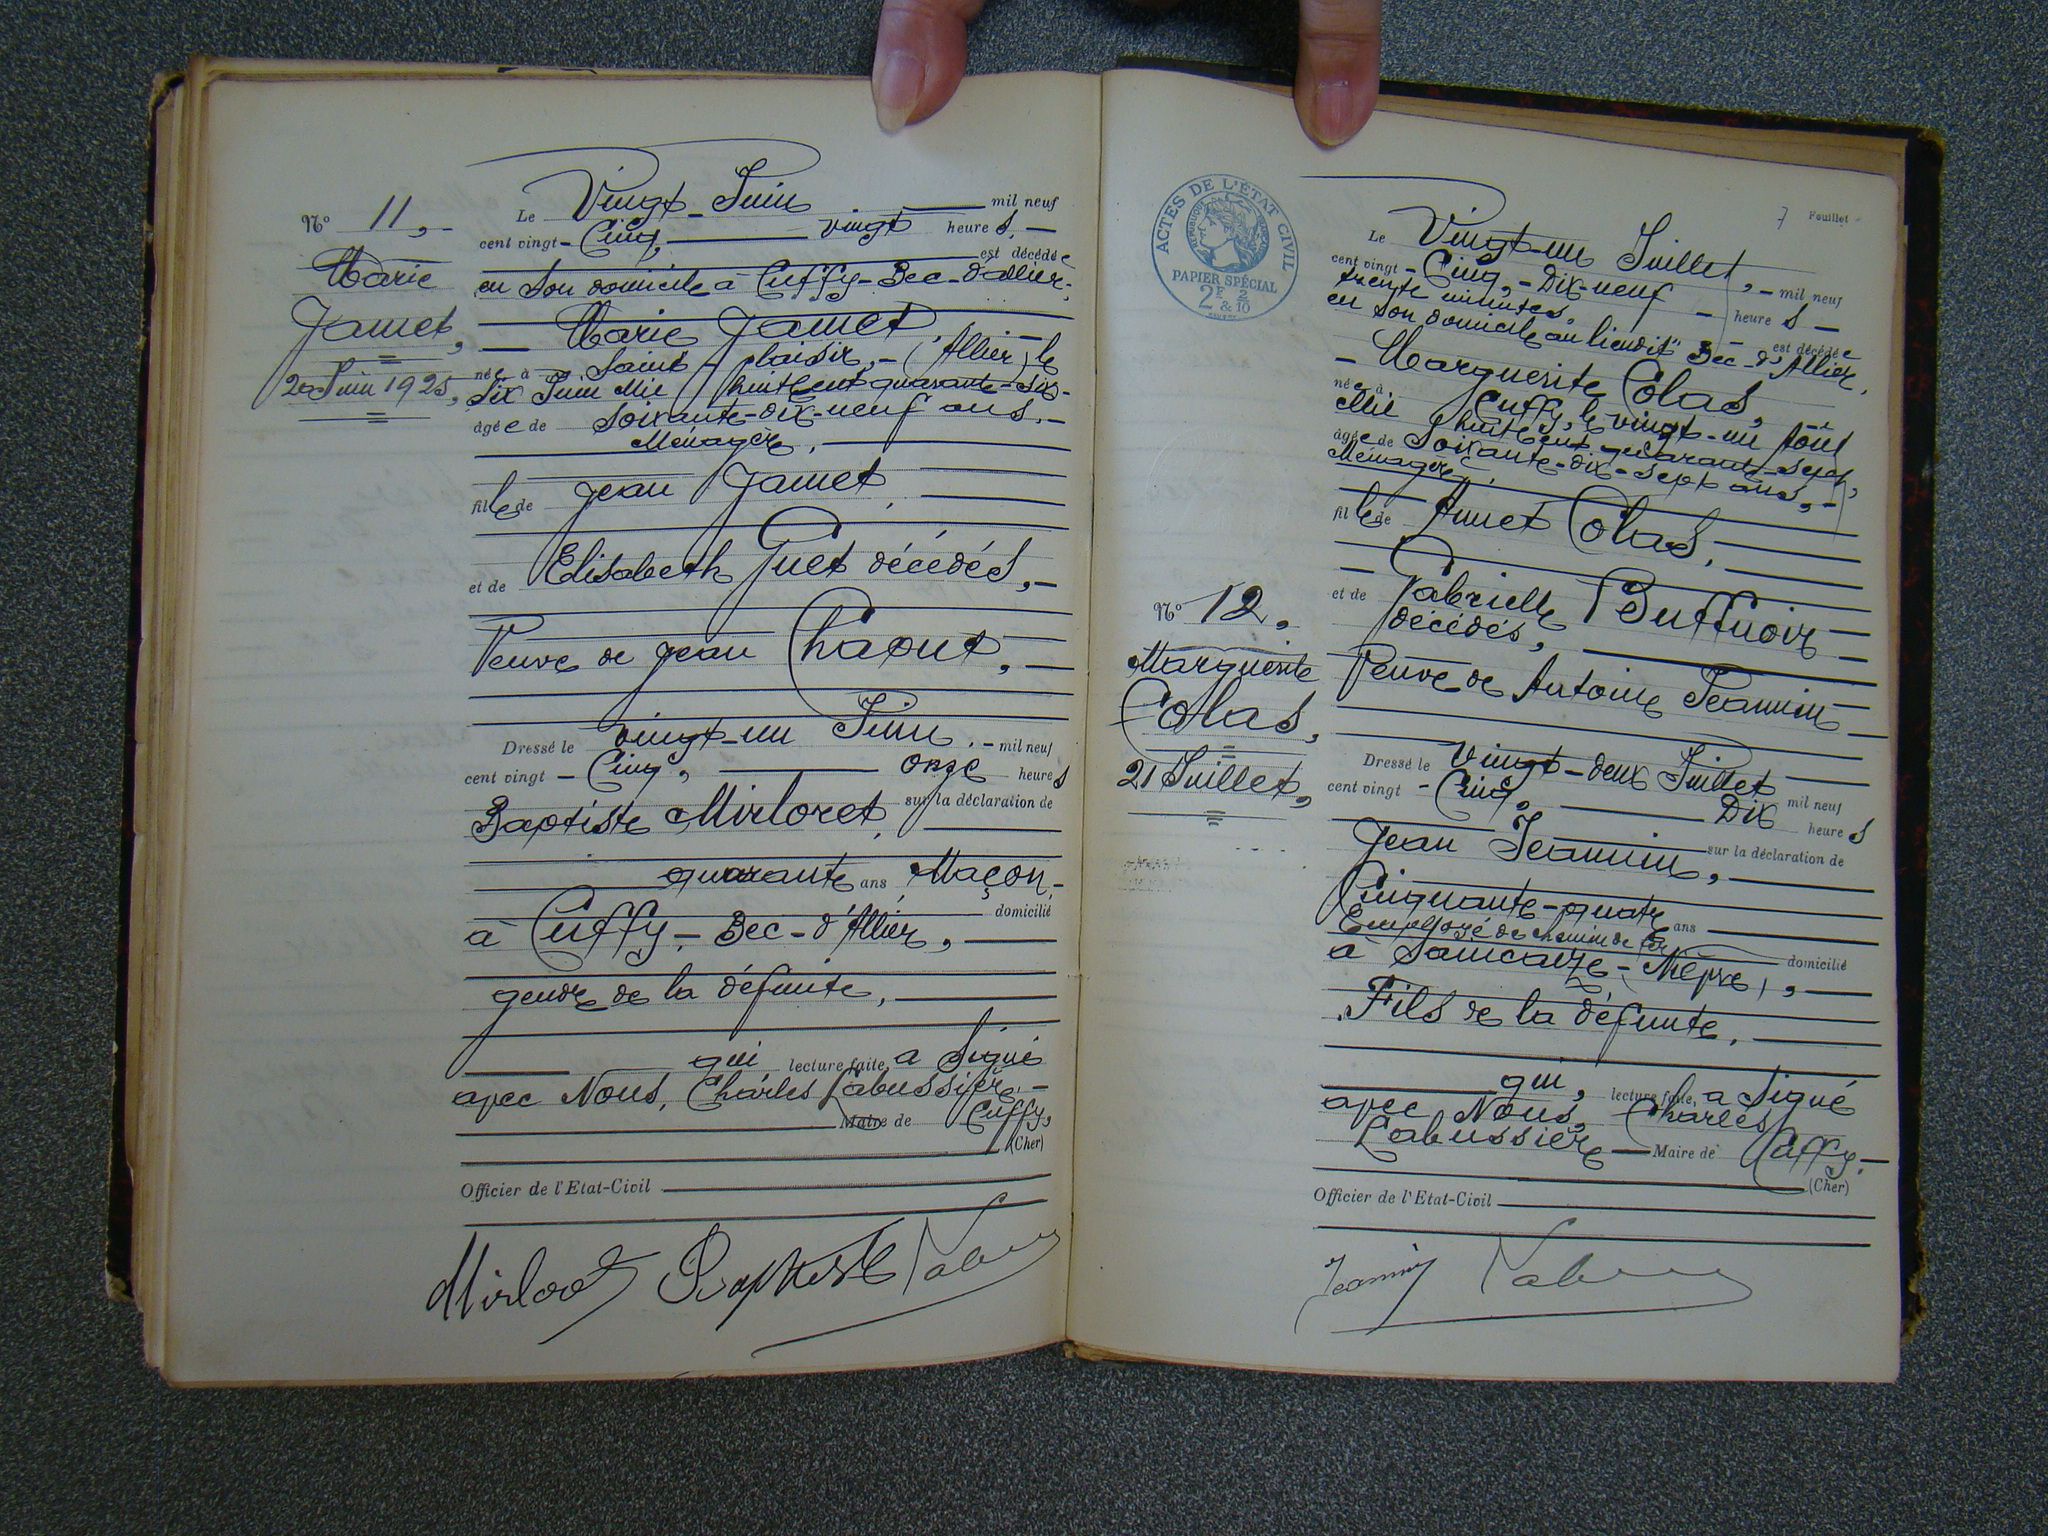 N° 11,-
Marie
Jamet,
20 Juin 1925,
Le Vingt-Juin mil neuf
cent vingt-Cinq, vingt heures,-
est décédée
en Son domicile à Cuffy-Bec-d'Allier,
Marie Jamet
née à Saint-plaisir,- (Allier) le
Six Juin Mil huit cent quarante-six-
âgée de Soixante-dix-neuf ans.-
Ménagère,
fille de Jean Jamet,
et de Elisabeth Guet décédés,-
Veuve de Jean Chaput,-
Dressé le vingt-un Juin.- mil neuf
cent vingt-Cinq, Onze heures
sur la déclaration de
Baptiste Mirloret,
quarante ans, Maçon,-
domicilié
à Cuffy-Bec-d'Allier,
gendre de la défunte,
qui, lecture faite, a Signé
avec Nous, Charles Labussière,-
Maire de Cuffy,
(Cher)
Officier de l'Etat-Civil
Baptiste
ACTES DE L'ÉTAT CIVIL
RÉPUBLIQUE FRANÇAISE
PAPIER SPÉCIAL
2F & 2/10
7 Feuillet
N° 12,
Marguerite
Colas,
21 Juillet,
Le Vingt-un Juillet,- mil neuf
cent vingt-Cinq,-Dix-neuf heures
trente minutes,
est décédée
en son domicile au lieudit "Bec-d'Allier,
- Marguerite Colas,
née à Cuffy, le vingt-un Août
Mil huit cent quarante-sept,
âgée de Soixante-dix-sept ans,-
Ménagère
fille de Amet Colas,
et de Gabrielle Buffnoir
décédés,
Veuve de Antoine Jeannin
Dressé le Vingt-deux Juillet
mil neuf
cent vingt-Cinq, Dix heures
sur la déclaration de
Jean Jeannin,
Cinquante-quatre ans
Employé de chemin de fer
domicilié
à Saincaize-(Nièvre),
Fils de la défunte,
qui, lecture faite, a Signé
avec Nous, Charles
Labussière Maire de Cuffy,-
(Cher)
Officier de l'Etat-Civil
Jeannin